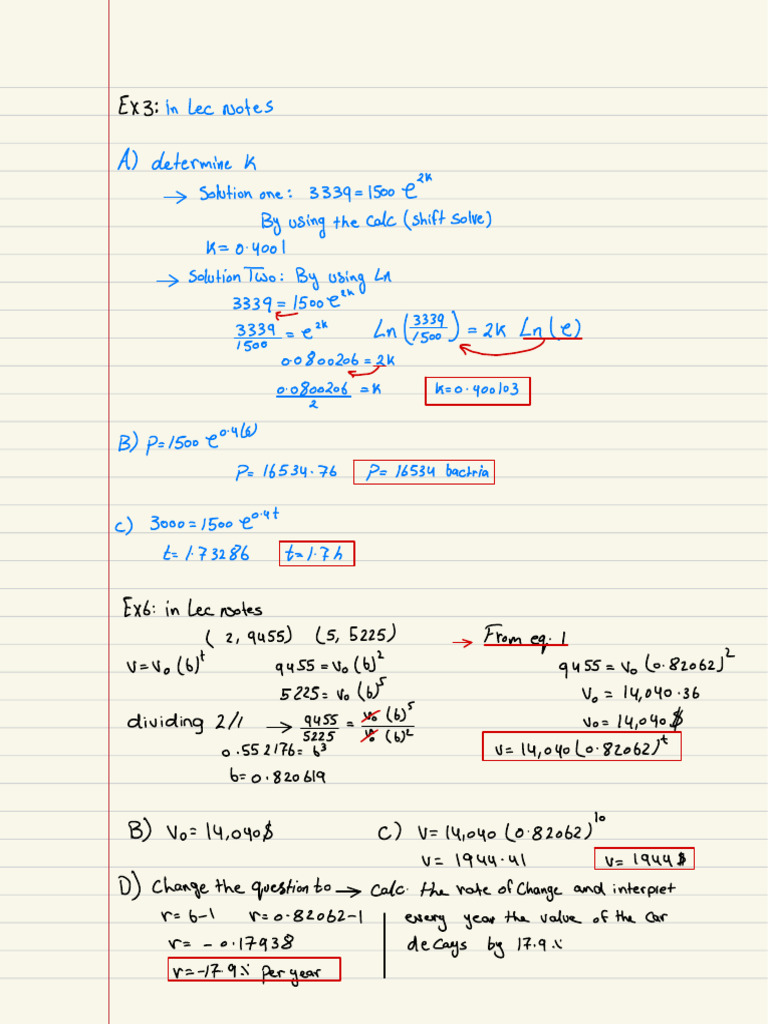 Ex3: in Lec notes
A) determine K
→ Solution one: 3339 = 1500 e^2K
By using the calc (shift solve)
K = 0.4001
→ Solution Two: By using Ln
3339 = 1500 e^2K
3339/1500 = e^2K Ln(3339/1500) = 2K Ln(e)
0.0800206 = 2K
0.0800206/2 = K K=0.400103
B) P=1500 e^0.4(6)
P= 16534.76 P= 16534 bactria
C) 3000 = 1500 e^0.4t
t= 1.73286 t=1.7h
Ex6: in Lec notes
(2, 9455) (5, 5225) → From eq. 1
V=V₀(b)^t 9455 = V₀(b)^2 9455 = V₀(0.82062)^2
5225 = V₀(b)^5 V₀ = 14,040.36
dividing 2/1 → 9455/5225 = V₀(b)^5/V₀(b)^2 V₀= 14,040$
0.552176 = b^3 V= 14,040(0.82062)^t
b= 0.820619
B) V₀= 14,040$ C) V= 14,040(0.82062)^10
V= 1944.41 V= 1944$
D) Change the question to → calc. the rate of change and interpret
r= b-1 r= 0.82062-1 every year the value of the car
r= -0.17938 decays by 17.9%
r=-17.9% per year